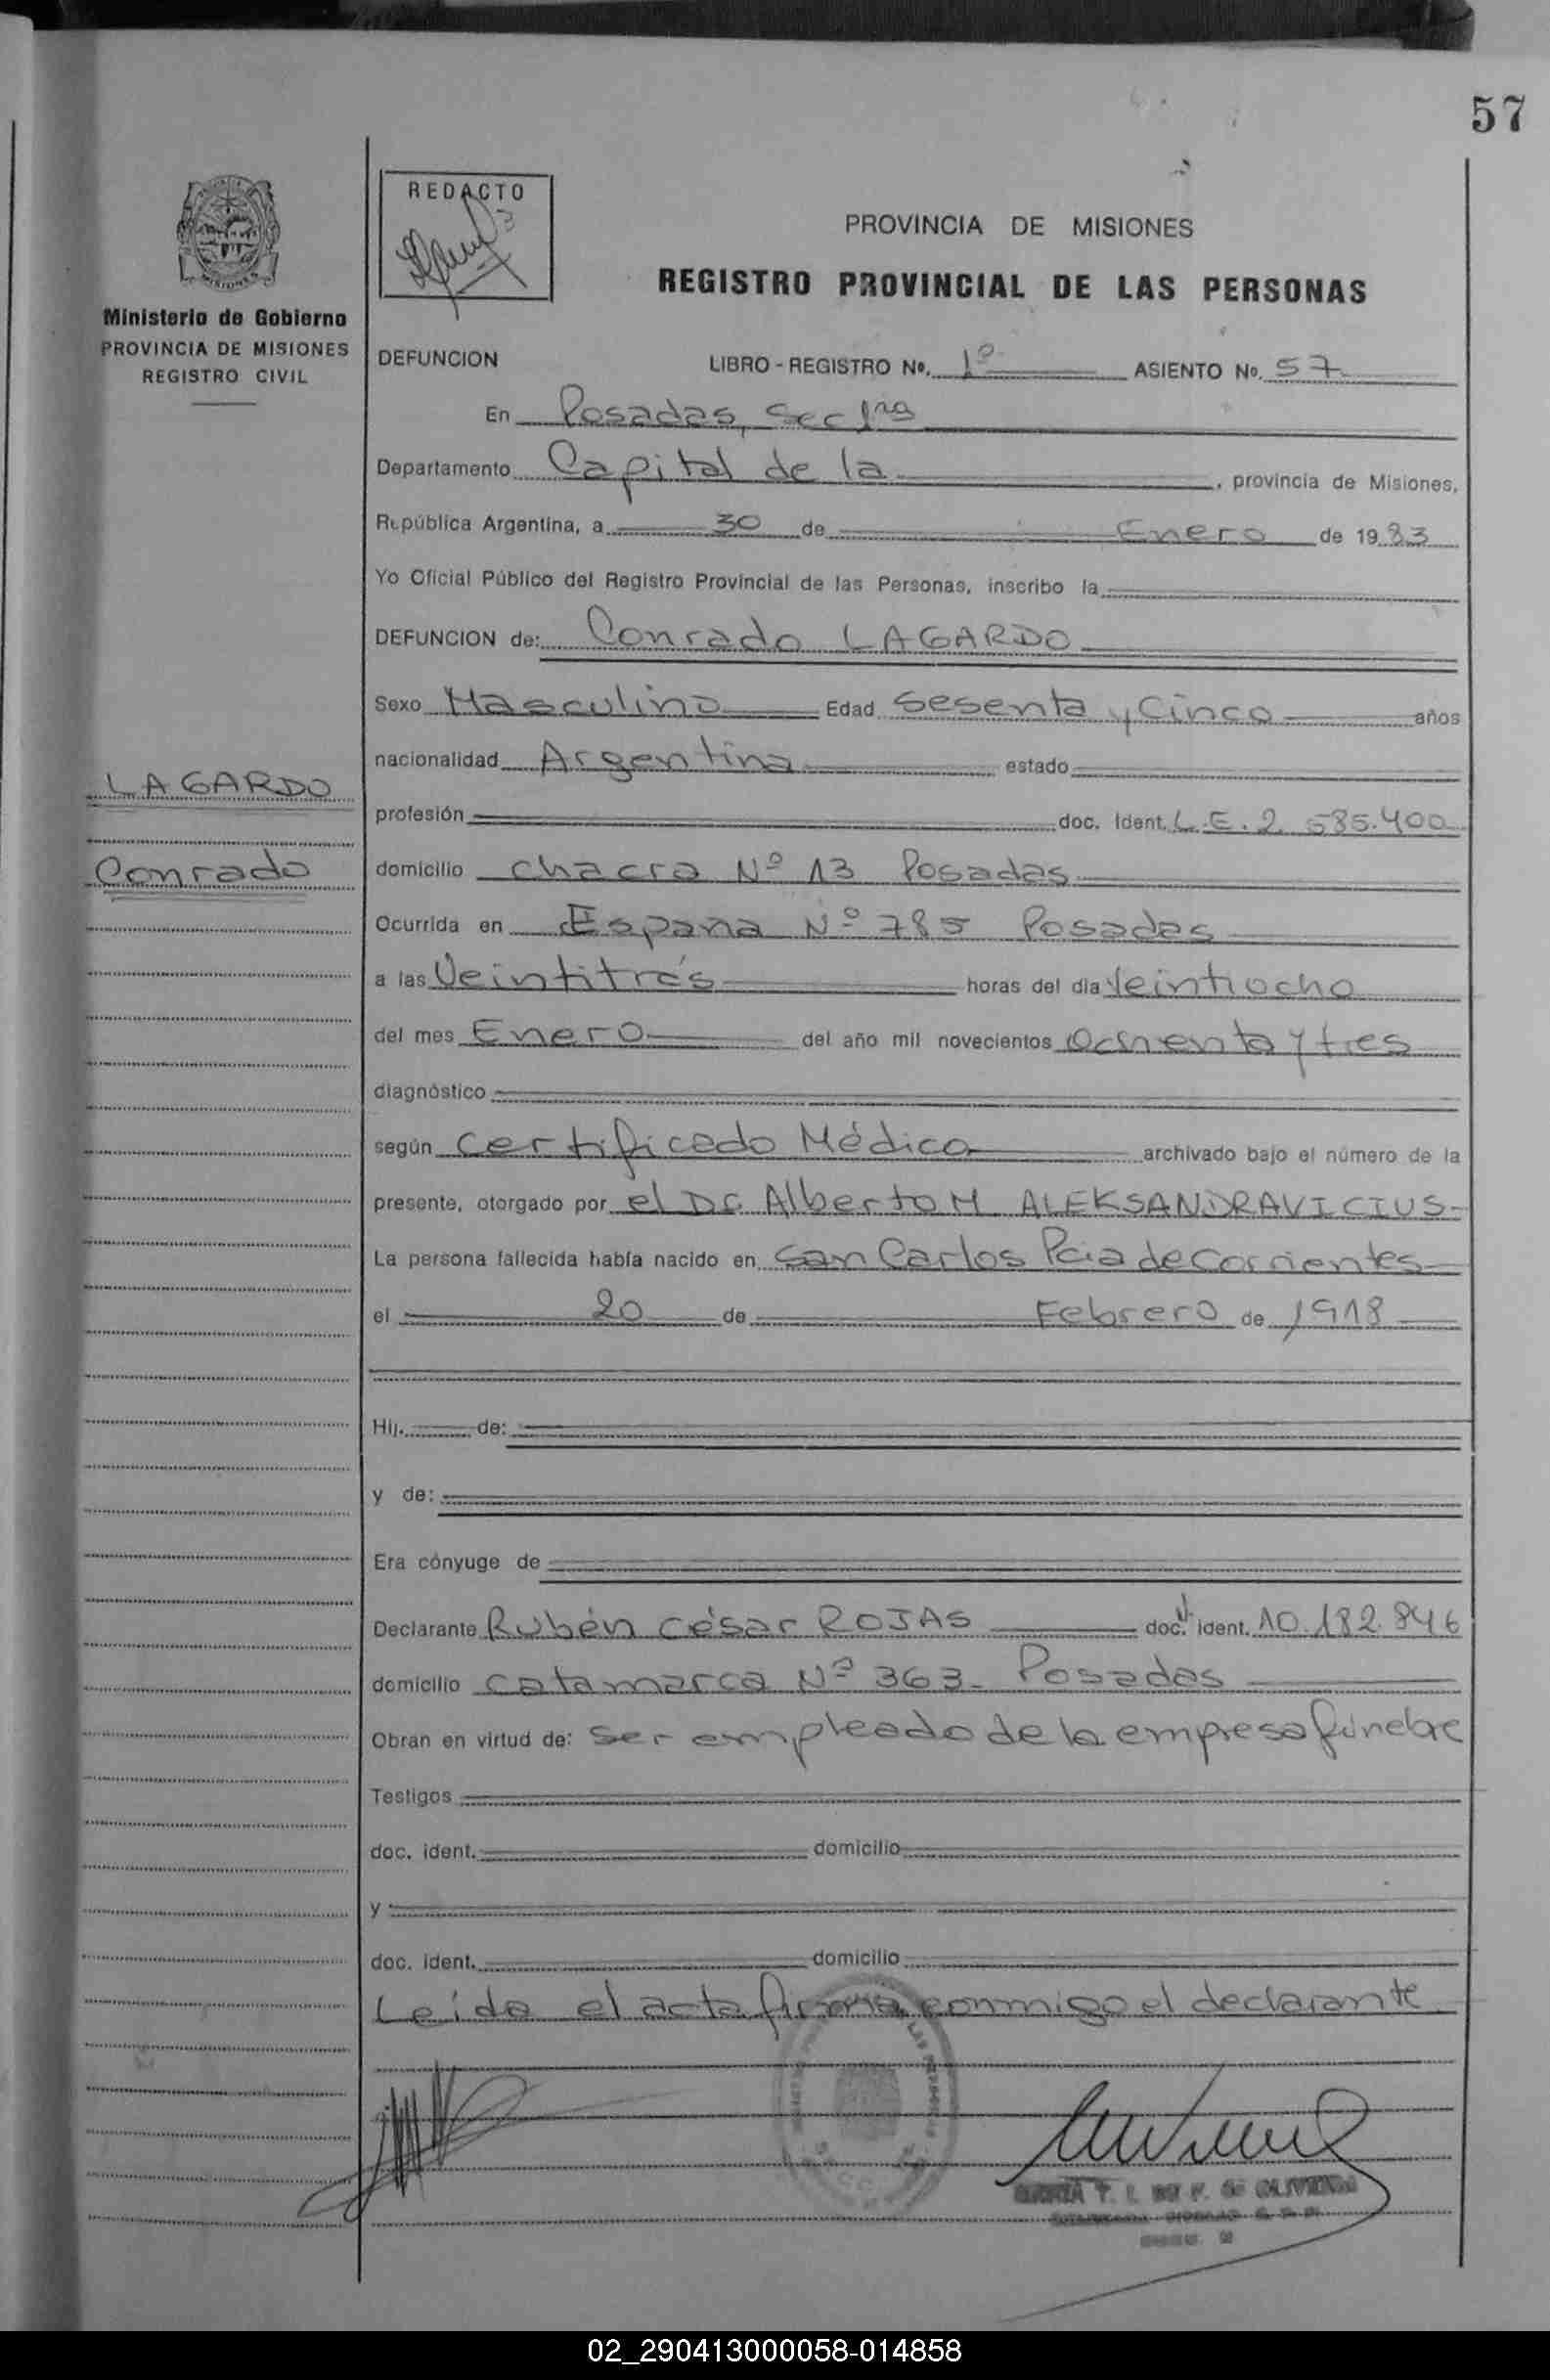 57
REDACTO
PROVINCIA DE MISIONES
REGISTRO PROVINCIAL DE LAS PERSONAS
MISIONES
Ministerio de Gobierno
PROVINCIA DE MISIONES
REGISTRO CIVIL
DEFUNCION LIBRO - REGISTRO No. 1º ASIENTO No. 57
En Posadas, Sec 1ra
Departamento Capital de la , provincia de Misiones,
República Argentina, a 30 de Enero de 1983
Yo Oficial Público del Registro Provincial de las Personas, inscribo la
DEFUNCION de: Conrado LAGARDO
Sexo Masculino Edad Sesenta y Cinco años
nacionalidad Argentina estado
LAGARDO
Conrado
profesión doc. Ident. L.E. 2.585.400
domicilio chacra Nº 13 Posadas
Ocurrida en España Nº 785 Posadas
a las Veintitrés horas del día Veintiocho
del mes Enero del año mil novecientos Ochenta y tres
diagnóstico
según Certificado Médico archivado bajo el número de la
presente, otorgado por el Dr. Alberto M ALEKSANDRAVICIUS-
La persona fallecida había nacido en San Carlos Pcia de Corrientes
el 20 de Febrero de 1918
Hij. de:
y de:
Era cónyuge de
Declarante Rubén César ROJAS doc. ident. 10.182.846
domicilio Catamarca Nº 363- Posadas
Obran en virtud de: ser empleado de la empresa fúnebre
Testigos
doc. ident. domicilio
y
doc. ident. domicilio
Leida el acta firma conmigo el declarante
02_290413000058-014858